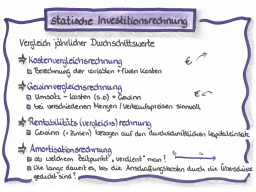 statische Investitionsrechnung
Vergleich jährlicher Durchschnittswerte
Kostenvergleichsrechnung
Berechnung der variablen + fixen Kosten
€
Gewinnvergleichsrechnung
Umsatz - Kosten (s.o) = Gewinn
€
bei verschiedenen Mengen / Verkaufspreisen sinnvoll
Rentabilitäts(vergleichs)rechnung
Gewinn (+ Zinsen) bezogen auf den durchschnittlichen Kapitaleinsatz
Amortisationsrechnung
ab welchem Zeitpunkt „verdient" man?
Wie lange dauert es, bis die Anschaffungskosten durch die Überschüsse
gedeckt sind?